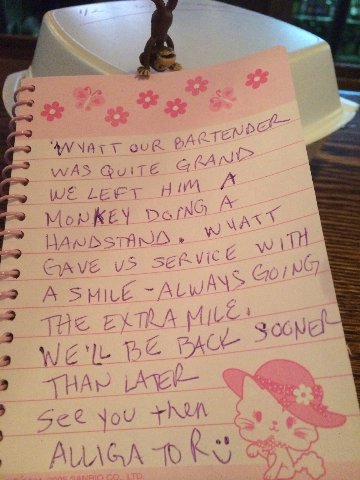 WYATT OUR BARTENDER
WAS QUITE GRAND
WE LEFT HIM A
MONKEY DOING A
HANDSTAND. WYATT
GAVE US SERVICE WITH
A SMILE - ALWAYS GOING
THE EXTRA MILE.
WE'LL BE BACK SOONER
THAN LATER
See you then
ALLIGATOR
SANRIO CO., LTD.